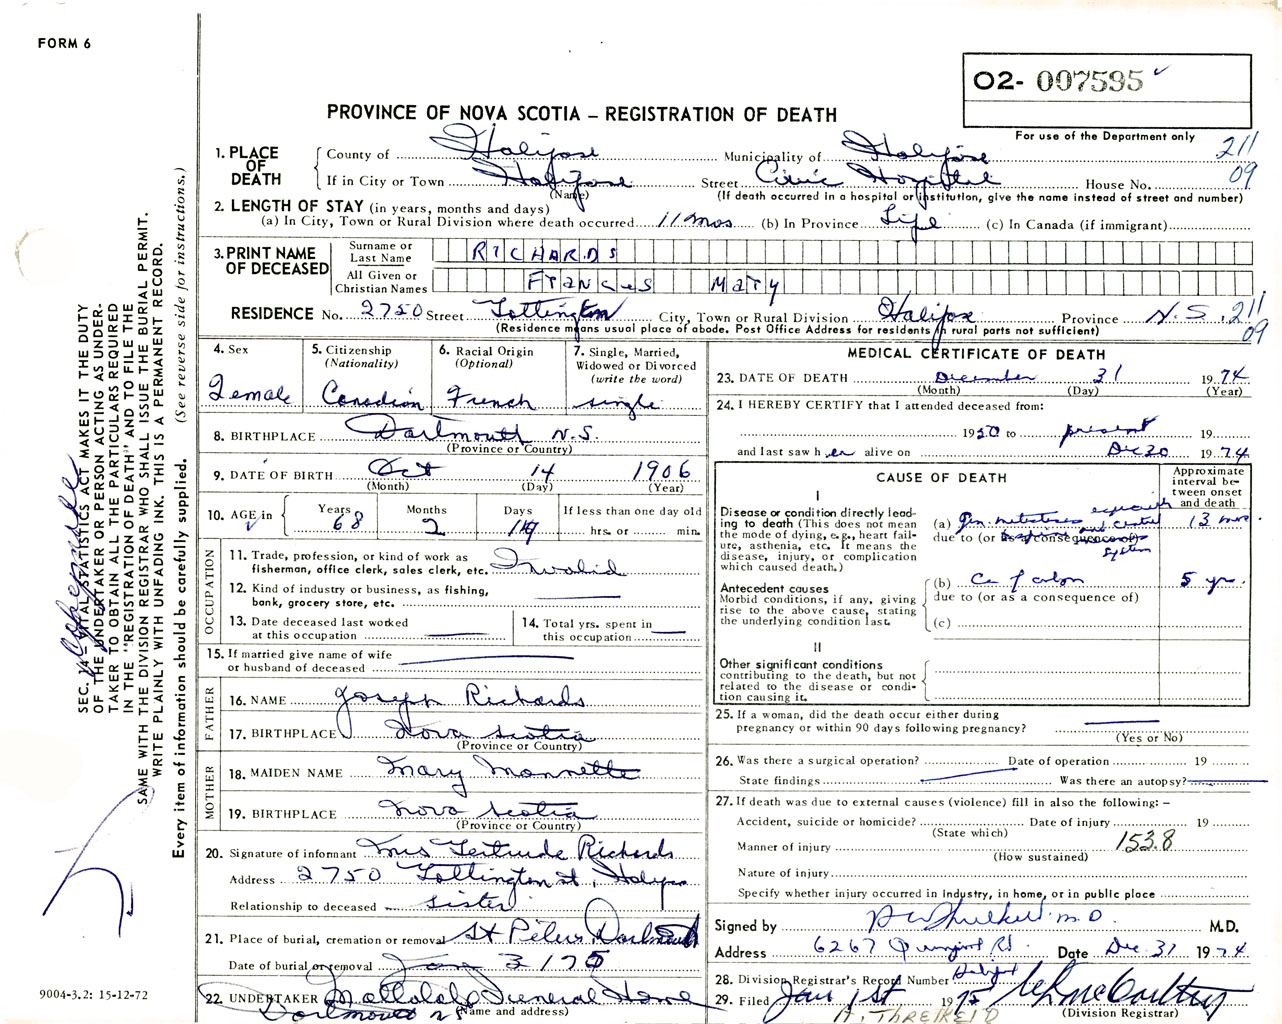 FORM 6
O2- 007595
PROVINCE OF NOVA SCOTIA – REGISTRATION OF DEATH
For use of the Department only
211
09
1. PLACE OF DEATH
County of Halifax Municipality of Halifax
If in City or Town Halifax Street Civic Hospital House No.
(Name) (If death occurred in a hospital or institution, give the name instead of street and number)
2. LENGTH OF STAY (in years, months and days)
(a) In City, Town or Rural Division where death occurred 11 mos (b) In Province Life (c) In Canada (if immigrant)
3. PRINT NAME OF DECEASED
Surname or Last Name RICHARDS
All Given or Christian Names Frances Mary
RESIDENCE No. 2750 Street Tottington City, Town or Rural Division Halifax Province N.S. 211
09
(Residence means usual place of abode. Post Office Address for residents in rural parts not sufficient)
4. Sex Female
5. Citizenship (Nationality) Canadian
6. Racial Origin (Optional) French
7. Single, Married, Widowed or Divorced (write the word) single
8. BIRTHPLACE Dartmouth N.S.
(Province or Country)
9. DATE OF BIRTH Oct 14 1906
(Month) (Day) (Year)
10. AGE in Years 68 Months 2 Days If less than one day old hrs. or min.
OCCUPATION
11. Trade, profession, or kind of work as fisherman, office clerk, sales clerk, etc. Invalid
12. Kind of industry or business, as fishing, bank, grocery store, etc.
13. Date deceased last worked at this occupation
14. Total yrs. spent in this occupation
15. If married give name of wife or husband of deceased
FATHER
16. NAME Joseph Richards
17. BIRTHPLACE Nova Scotia
(Province or Country)
MOTHER
18. MAIDEN NAME Mary Monnette
19. BIRTHPLACE Nova Scotia
(Province or Country)
20. Signature of informant Mrs Gertrude Richards
Address 2750 Tottington St, Halifax
Relationship to deceased sister
21. Place of burial, cremation or removal St Peters Dartmouth
Date of burial or removal Jan 3/75
22. UNDERTAKER Funeral Home
Dartmouth NS (Name and address)
MEDICAL CERTIFICATE OF DEATH
23. DATE OF DEATH December 31 1974
(Month) (Day) (Year)
24. I HEREBY CERTIFY that I attended deceased from:
1950 to present 19
and last saw her alive on Dec 20 1974
CAUSE OF DEATH
Approximate interval between onset and death
I
Disease or condition directly leading to death (This does not mean the mode of dying, e.g., heart failure, asthenia, etc. It means the disease, injury, or complication which caused death.)
(a) Gen. metastases especially and central system 13 mos.
due to (or as a consequence of)
Antecedent causes
Morbid conditions, if any, giving rise to the above cause, stating the underlying condition last.
(b) Ca of colon 5 yr.
due to (or as a consequence of)
(c)
II
Other significant conditions contributing to the death, but not related to the disease or condition causing it.
25. If a woman, did the death occur either during pregnancy or within 90 days following pregnancy?
(Yes or No)
26. Was there a surgical operation? Date of operation 19
State findings Was there an autopsy?
27. If death was due to external causes (violence) fill in also the following: –
Accident, suicide or homicide? Date of injury 19
(State which) 153.8
Manner of injury
(How sustained)
Nature of injury
Specify whether injury occurred in industry, in home, or in public place
Signed by M.D. M.D.
Address 6267 Rd. Halifax Date Dec 31 1974
28. Division Registrar's Record Number
29. Filed Jan 1st 1975
(Division Registrar)
H. THRELKELD
SEC. 14 – VITAL STATISTICS ACT MAKES IT THE DUTY
OF THE UNDERTAKER OR PERSON ACTING AS UNDER-
TAKER TO OBTAIN ALL THE PARTICULARS REQUIRED
IN THE "REGISTRATION OF DEATH" AND TO FILE THE
SAME WITH THE DIVISION REGISTRAR WHO SHALL ISSUE THE BURIAL PERMIT.
WRITE PLAINLY WITH UNFADING INK. THIS IS A PERMANENT RECORD.
Every item of information should be carefully supplied. (See reverse side for instructions.)
9004-3.2: 15-12-72